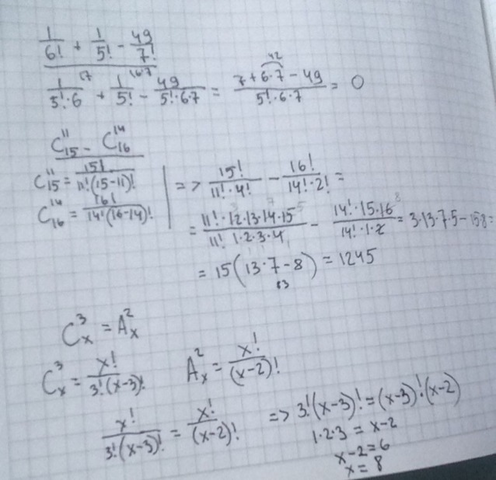 1/6! + 1/5! - 49/7!
1/(5!·6) + 1/5! - 49/(5!·6·7) = (7 + 6·7 - 49)/(5!·6·7) = 0
C₁₅¹¹ - C₁₆¹⁴
C₁₅¹¹ = 15!/(11!(15-11)!)
C₁₆¹⁴ = 16!/(14!(16-14)!)
=> 15!/(11!·4!) - 16!/(14!·2!) =
= (11!·12·13·14·15)/(11! 1·2·3·4) - (14!·15·16)/(14!·1·2) = 3·13·7·5 - 15·8 =
= 15(13·7-8) = 1245
83
Cₓ³ = Aₓ²
Cₓ³ = x!/(3!(x-3)!) Aₓ² = x!/(x-2)!
x!/(3!(x-3)!) = x!/(x-2)! => 3!(x-3)! = (x-3)!(x-2)
1·2·3 = x-2
x-2=6
x=8